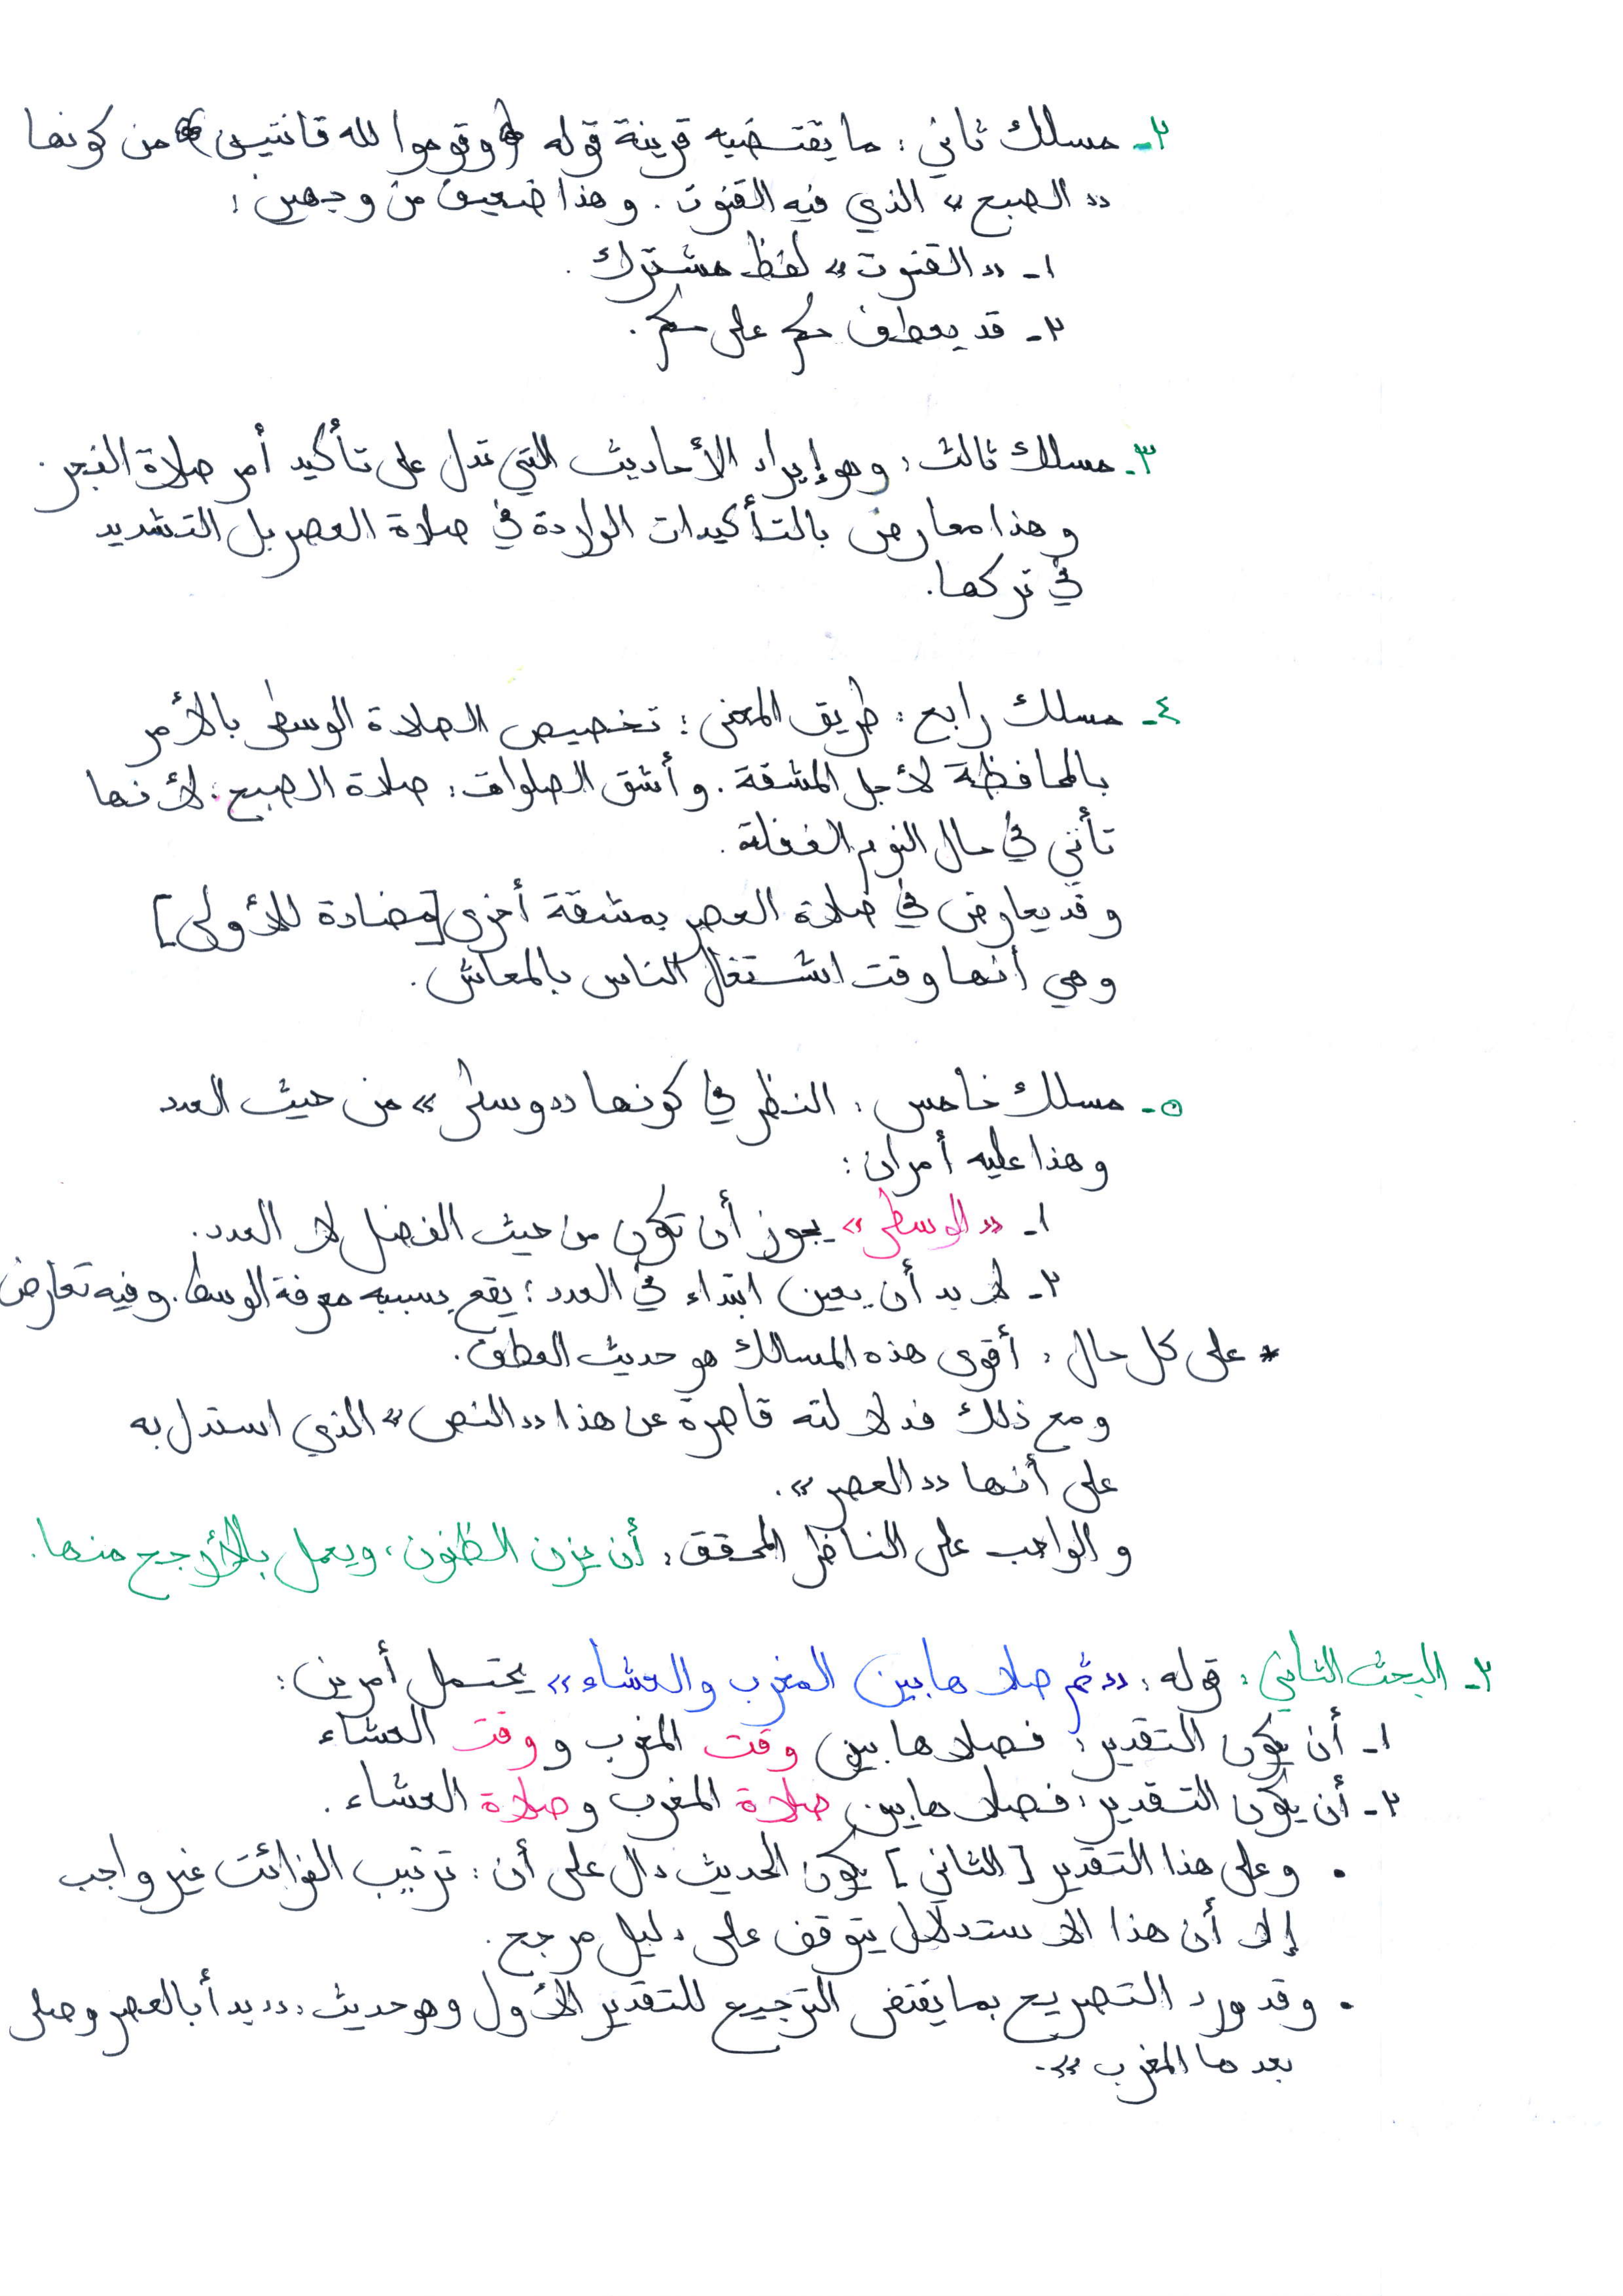 ٢- مسلك ثاني : ما يقتضيه قرينة قوله ﴿وقوموا لله قانتين﴾ من كونها
«الصبح» الذي فيه القنوت . وهذا ضعيف من وجهين :
١- «القنوت» لفظ مشترك .
٢- قد يعطف حكم على حكم .
٣- مسلك ثالث : وهو إيراد الأحاديث التي تدل على تأكيد أمر صلاة الفجر .
وهذا معارض بالتأكيدات الواردة في صلاة العصر بل التشديد
في تركها .
٤- مسلك رابع : طريق المعنى : تخصيص الصلاة الوسطى بالأمر
بالمحافظة لأجل المشقة . وأشق الصلوات : صلاة الصبح ؛ لأنها
تأتي في حال النوم الغفلة .
وقد يعارض في صلاة العصر بمشقة أخرى [مضادة للأولى]
وهي أنها وقت اشتغال الناس بالمعاش .
٥- مسلك خامس : النظر في كونها «وسطى» من حيث العدد
وهذا عليه أمران :
١- «الوسطى» يجوز أن تكون من حيث الفضل لا العدد .
٢- لابد أن يعين ابتداء في العدد ؛ يقع بسببه معرفة الوسط . وفيه تعارض
* على كل حال : أقوى هذه المسالك هو حديث العطف .
ومع ذلك فدلالته قاصرة عن هذا «النص» الذي استدل به
على أنها «العصر» .
والواجب على الناظر المحقق : أن يزن الظنون ، ويعمل بالأرجح منها .
٢- البحث الثاني : قوله : «ثم صلاها بين المغرب والعشاء» يحتمل أمرين :
١- أن يكون التقدير : فصلاها بين وقت المغرب ووقت العشاء
٢- أن يكون التقدير : فصلاها بين صلاة المغرب وصلاة العشاء .
• وعلى هذا التقدير [الثاني] يكون الحديث دال على أن : ترتيب الفوائت غير واجب
إلا أن هذا الاستدلال يتوقف على دليل مرجح .
• وقد ورد التصريح بما يقتضى الترجيح للتقدير الأول وهو حديث : «بدأ بالعصر وصلى
بعدها المغرب» .